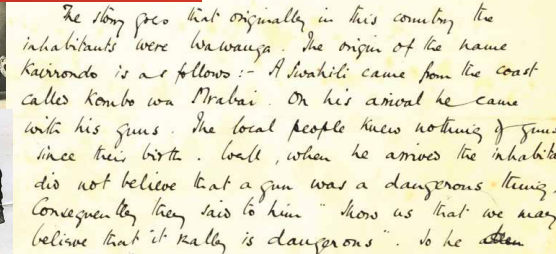 The story goes that originally in this country the
inhabitants were Wawanga. The origin of the name
Kavirondo is as follows:- A Swahili came from the coast
called Kombo wa Mrabai. On his arrival he came
with his guns. The local people knew nothing of guns
since their birth. Well, when he arrived the inhabita
did not believe that a gun was a dangerous thing
Consequently they said to him "Show us that we may
believe that it really is dangerous". So he